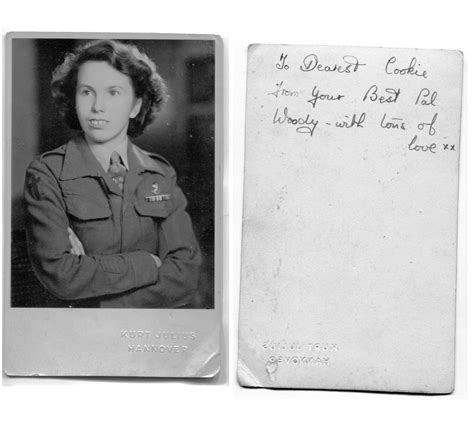 KURT JULIUS
HANNOVER
To Dearest Cookie
From Your Best Pal
Woody - with tons of
love xx